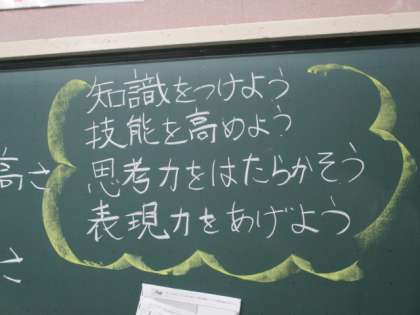 知識をつけよう
技能を高めよう
思考力をはたらかそう
表現力をあげよう
高さ
さ